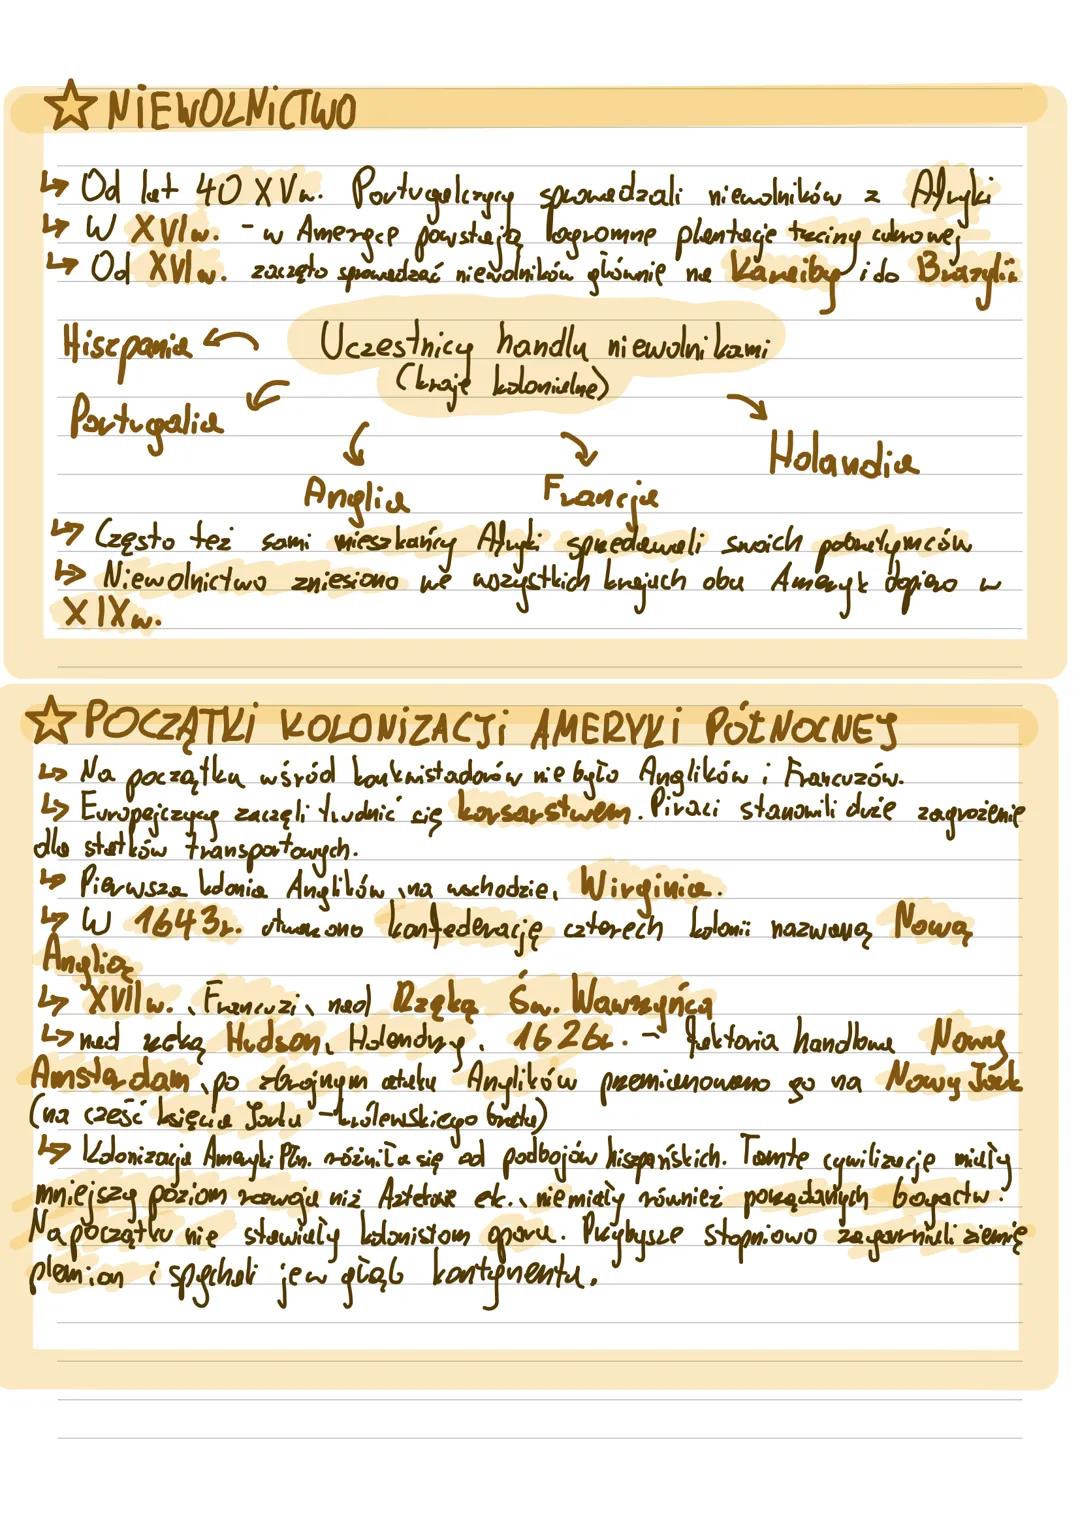 NIEWOLNICTWO
↳ Od lat 40 XVw. Portugalczycy sprowadzali niewolników z Afryki
↳ W XVIw. - w Ameryce powstają ogromne plantacje trzciny cukrowej
↳ Od XVIw. zaczęto sprowadzać niewolników głównie na Karaiby i do Brazylii
Uczestnicy handlu niewolnikami
(kraje kolonialne)
Hiszpania
Portugalia
Anglia
Francja
Holandia
↳ Często też sami mieszkańcy Afryki sprzedawali swoich pobratymców
↳ Niewolnictwo zniesiono we wszystkich krajach obu Ameryk dopiero w
XIXw.
POCZĄTKI KOLONIZACJI AMERYKI PÓŁNOCNEJ
↳ Na początku wśród konkwistadorów nie było Anglików i Francuzów.
↳ Europejczycy zaczęli trudnić się korsarstwem. Piraci stanowili duże zagrożenie
dla statków transportowych.
↳ Pierwsza kolonia Anglików, na wschodzie, Wirginia.
↳ W 1643r. utworzono konfederację czterech kolonii nazwaną Nową
Anglią
↳ XVIIw., Francuzi, nad Rzeką Św. Wawrzyńca
↳ nad rzeką Hudson, Holendrzy, 1626r. - faktoria handlowa Nowy
Amsterdam, po zbrojnym ataku Anglików przemianowano go na Nowy Jork
(na cześć księcia Jorku - królewskiego brata)
↳ Kolonizacja Ameryki Płn. różniła się od podbojów hiszpańskich. Tamte cywilizacje miały
mniejszy poziom rozwoju niż Aztekowie etc., nie miały również pożądanych bogactw.
Na początku nie stawiały kolonistom oporu. Przybysze stopniowo zagarniali ziemię
plemion i spychali je w głąb kontynentu.